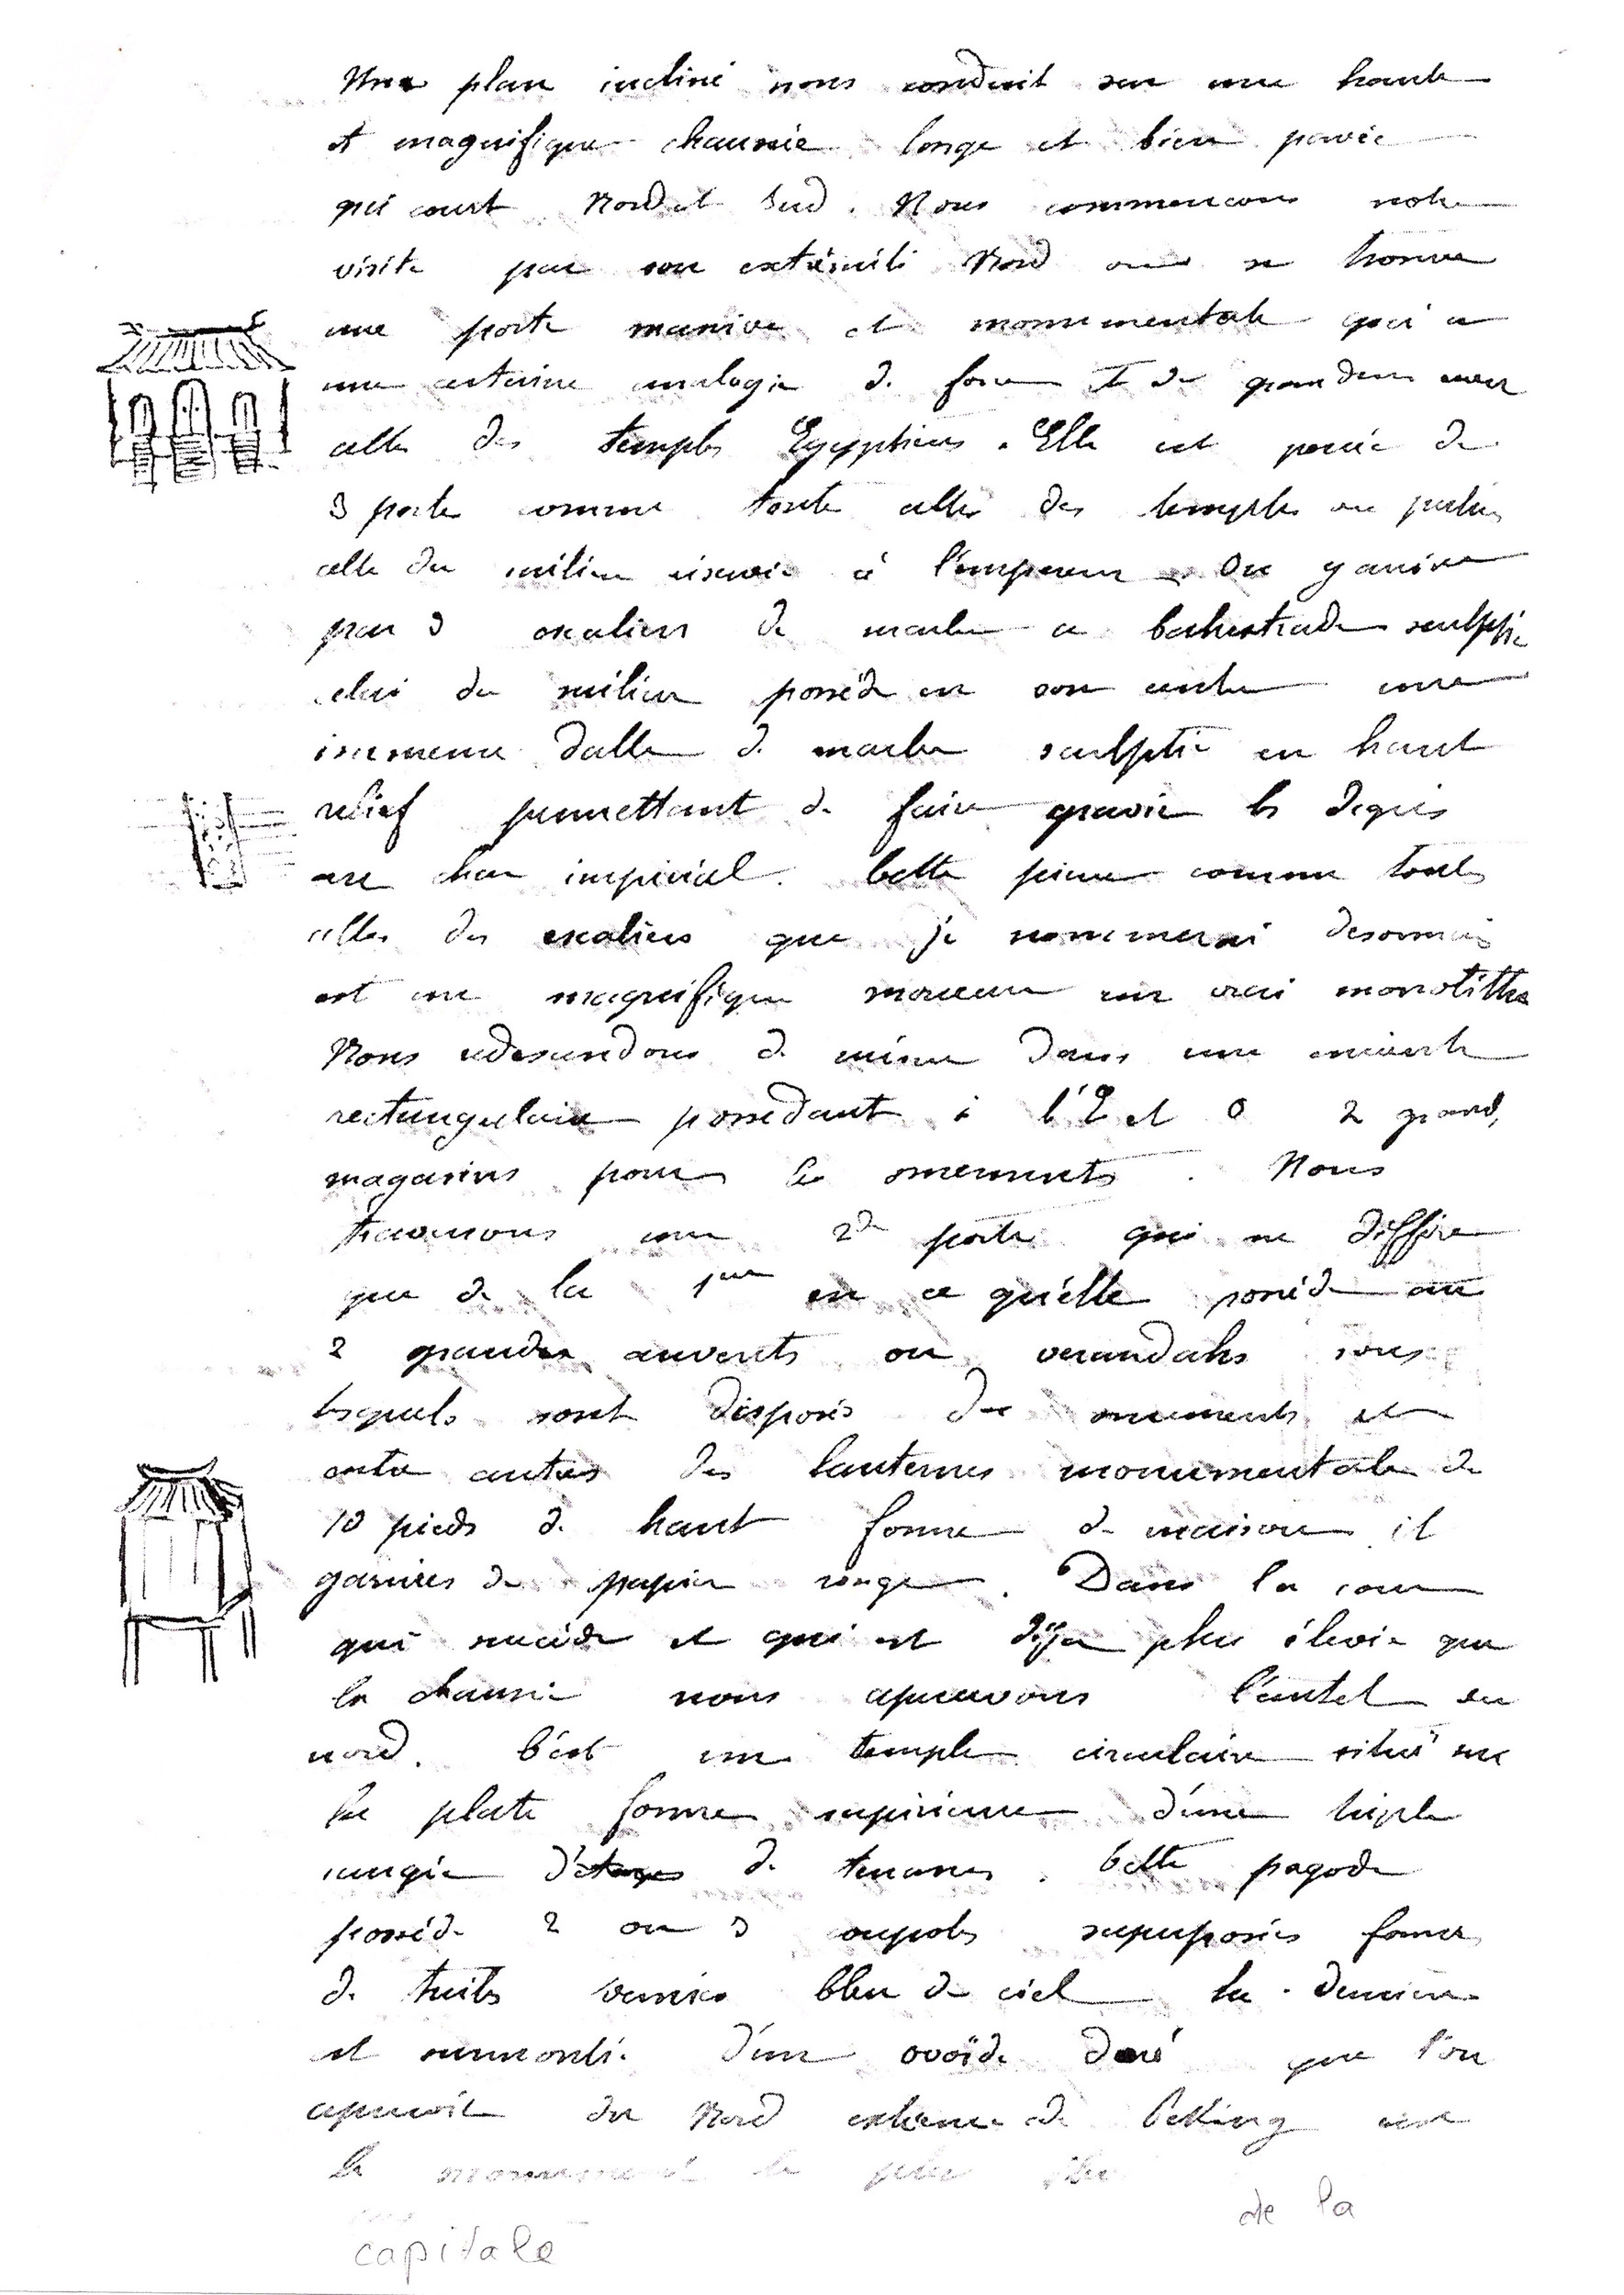 Une plan incliné nous conduit sur une haute
et magnifique chaussée longe et bien pavée
qui court Nord et Sud. Nous commencons notre
visite par son extrémité Nord ou se trouve
une porte massive et monumentale qui a
une certaine analogie de forme et de grandeur avec
celle des temples Egyptiens. Elle est percée de
3 porte comme toute celles des temples ou palais
celle du milieu réservée à l'empereur. On y arrive
par 3 escaliers de marbre a balustrade sculptée
celui du milieu possède en son centre une
immense dalle de marbre sculptée en haut
relief permettant de faire gravir les degrés
au char impérial. Cette pierre comme toutes
celles des escaliers que je nommerai desormais
est un magnifique morceau un vrai monolithe
Nous redescendons de même dans une enceinte
rectangulaire possedant à l'E et O 2 grands
magasins pour les ornements. Nous
traversons une 2de porte qui ne diffère
que de la 1ere en ce qu'elle possède
2 grandes auvents ou verandahs sous
lesquels sont disposés des ornements et
entre autres des lanternes monumentales de
10 pieds de haut forme de maison et
garnies de papier rouge. Dans la cour
qui succède et qui est déja plus élevée que
la chaussée nous apercevons l'autel du
nord. C'est un temple circulaire situé sur
la plate forme supérieure d'une triple
rangée de terrasses. Cette pagode
possède 2 ou 3 coupoles superposées formées
de tuiles vernies bleu de ciel la dernière
est surmontée d'une ovoïde doré que l'on
apercoit du Nord extreme de Peking
le monument le plus
de la
capitale